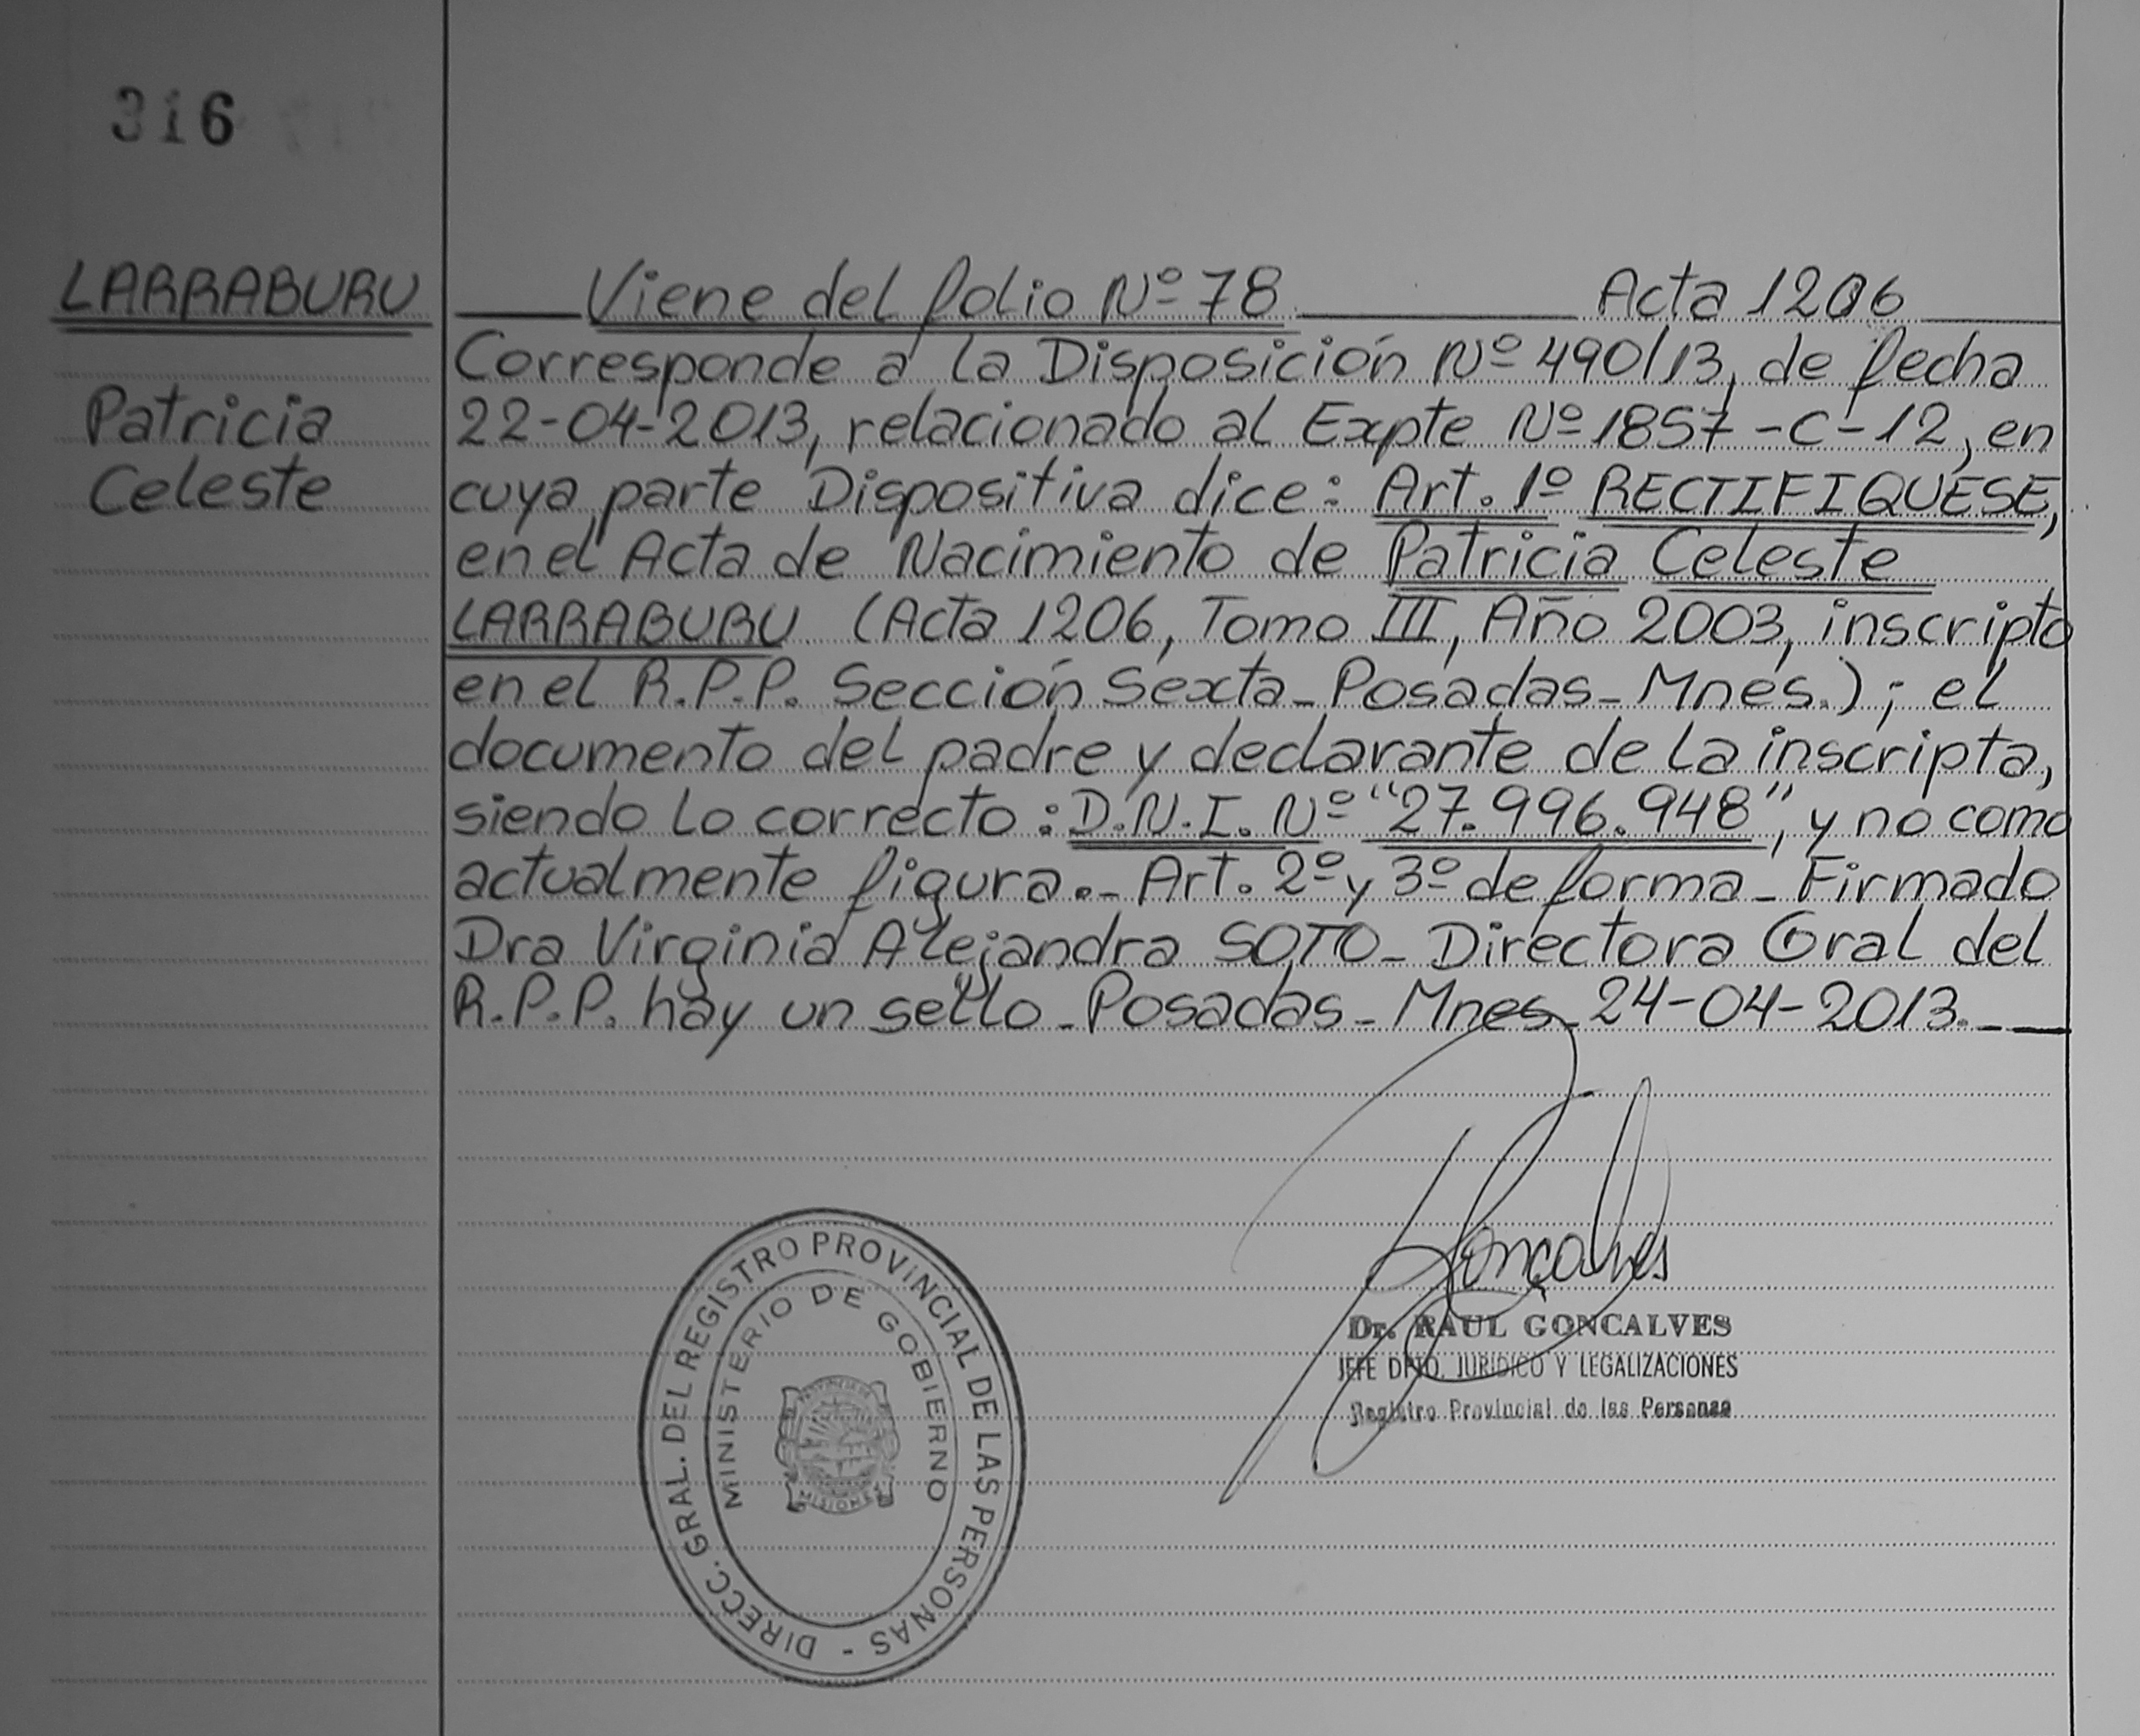 316
LARRABURU
Patricia
Celeste
Viene del folio Nº 78 Acta 1206
Corresponde a la Disposición Nº 490/13, de fecha
22-04-2013, relacionado al Expte Nº 1857-C-12, en
cuya parte Dispositiva dice: Art. 1º RECTIFIQUESE,
en el Acta de Nacimiento de Patricia Celeste
LARRABURU (Acta 1206, Tomo III, Año 2003, inscripto
en el R.P.P. Sección Sexta-Posadas-Mnes.); el
documento del padre y declarante de la inscripta,
siendo lo correcto: D.N.I. Nº "27.996.948", y no como
actualmente figura.- Art. 2º y 3º de forma- Firmado
Dra Virginia Alejandra SOTO- Directora Gral del
R.P.P. hay un sello- Posadas- Mnes- 24-04-2013.-
Goncalves
Dr. RAUL GONCALVES
JEFE DPTO. JURIDICO Y LEGALIZACIONES
Registro Provincial de las Personas
DIRECC. GRAL. DEL REGISTRO PROVINCIAL DE LAS PERSONAS -
MINISTERIO DE GOBIERNO
PROVINCIA DE
MISIONES